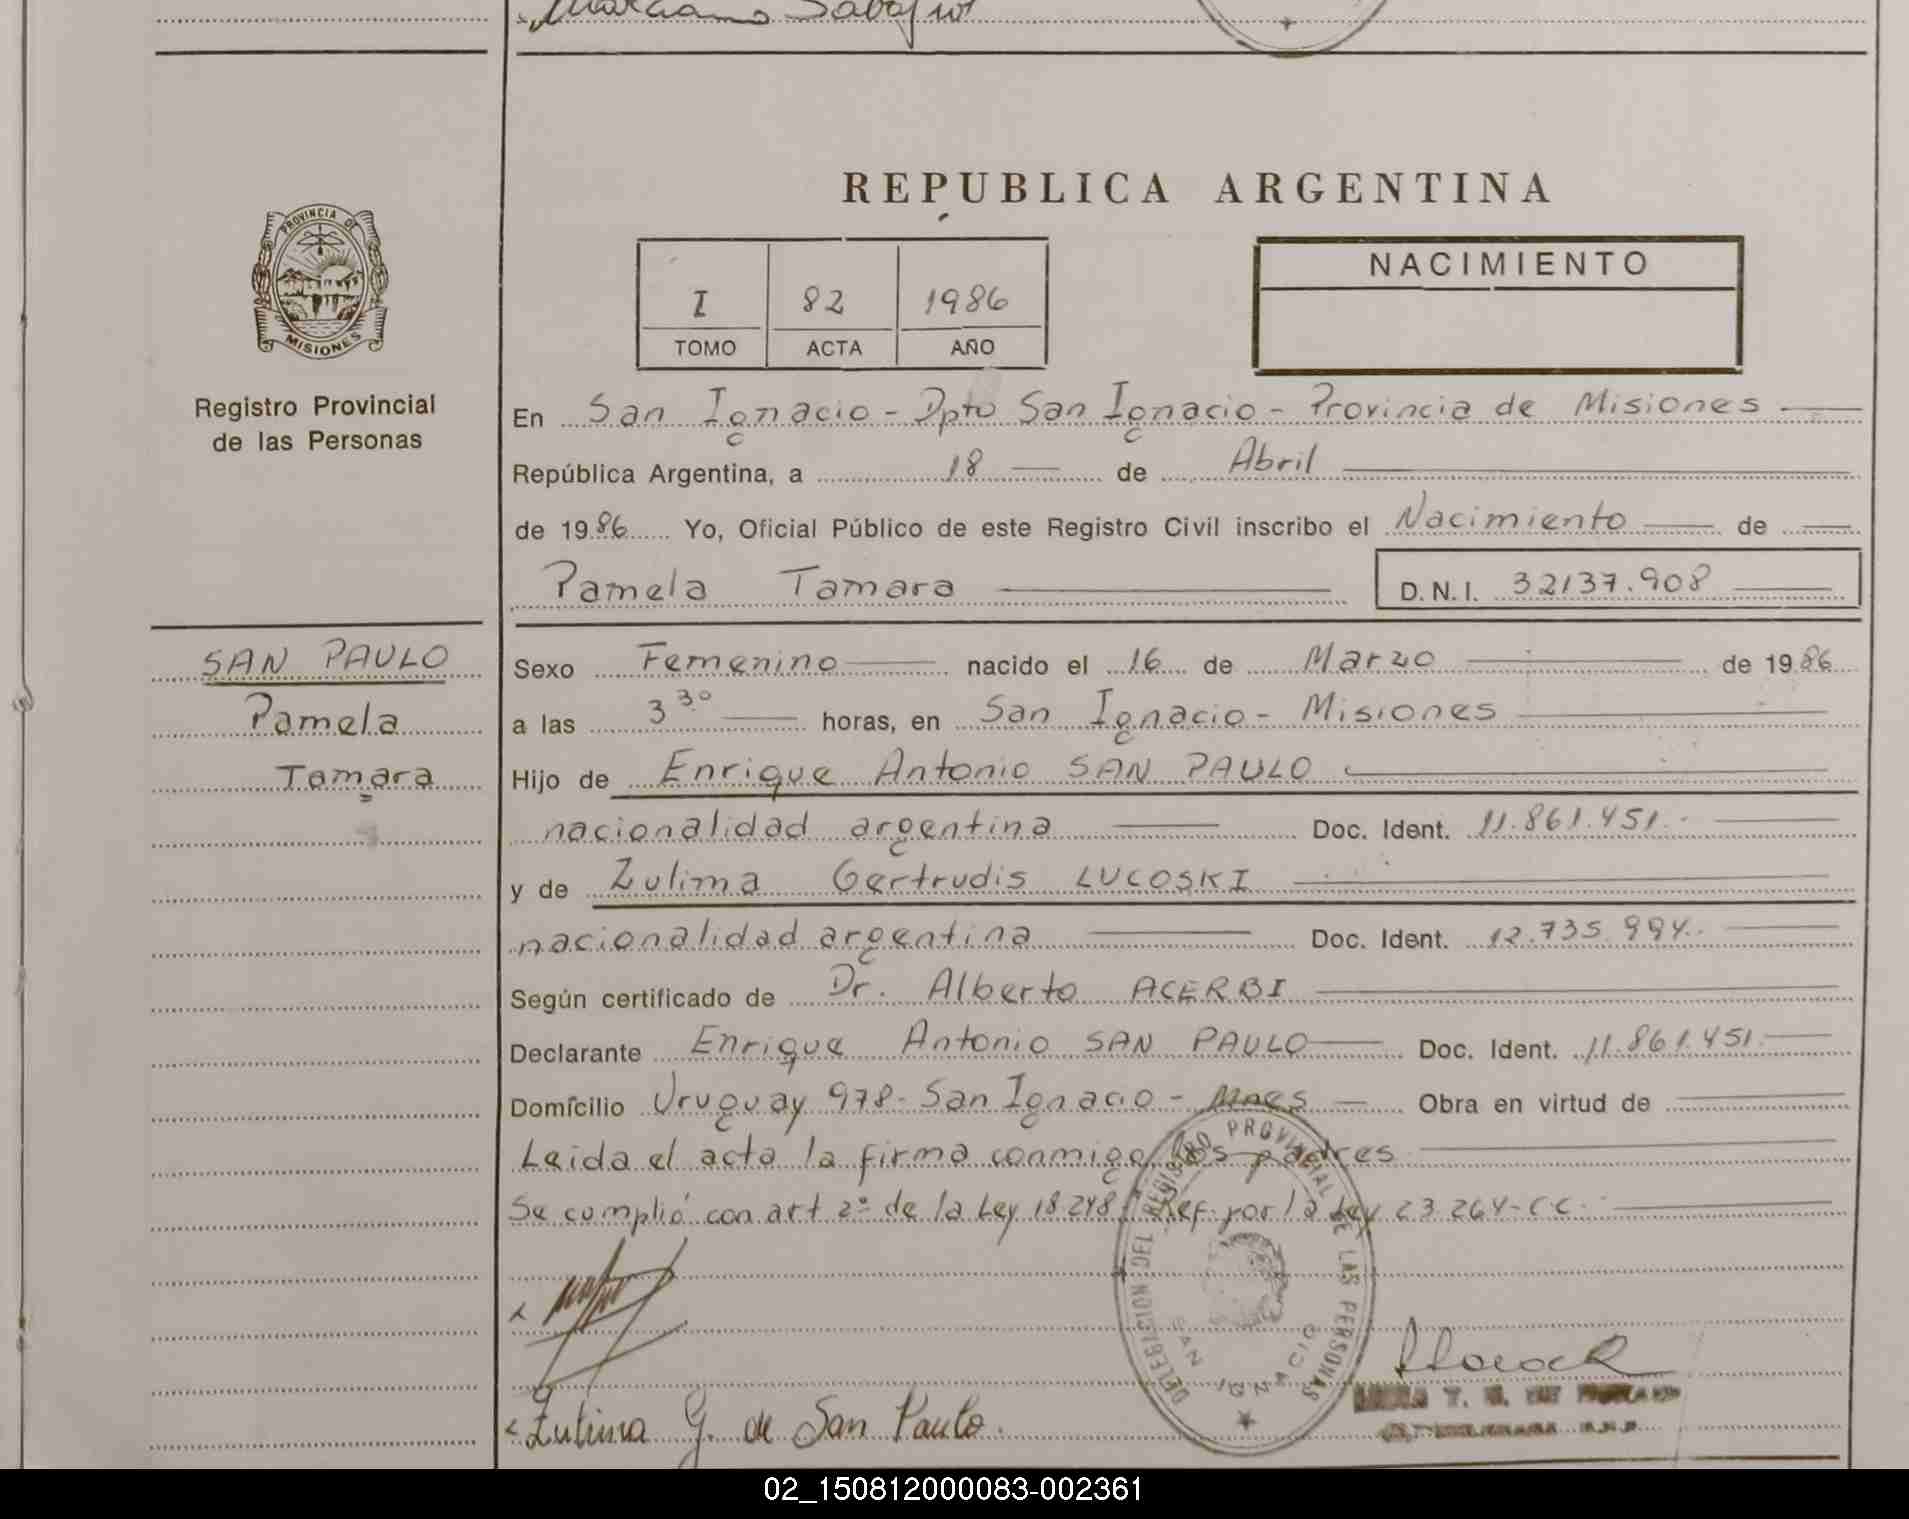 Marciano
REPUBLICA ARGENTINA
PROVINCIA DE
MISIONES
I 82 1986
TOMO ACTA AÑO
NACIMIENTO
Registro Provincial
de las Personas
En San Ignacio - Dpto San Ignacio - Provincia de Misiones
República Argentina, a 18 de Abril
de 1986 Yo, Oficial Público de este Registro Civil inscribo el Nacimiento de
Pamela Tamara D.N.I. 32137.908
SAN PAULO
Pamela
Tamara
Sexo Femenino nacido el 16 de Marzo de 1986
a las 3 30 horas, en San Ignacio - Misiones
Hijo de Enrique Antonio SAN PAULO
nacionalidad argentina Doc. Ident. 11.861.451.
y de Zulima Gertrudis LUCOSKI
nacionalidad argentina Doc. Ident. 12.735.994.
Según certificado de Dr. Alberto ACERBI
Declarante Enrique Antonio SAN PAULO Doc. Ident. 11.861.451
Domicilio Uruguay 978 - San Ignacio - Mnes Obra en virtud de
Leida el acta la firma conmigo los padres
Se cumplió con art 2º de la Ley 18.248. Ref. por la Ley 23.264 - C.C.
DELEGACION DEL REGISTRO PROVINCIAL DE LAS PERSONAS
SAN IGNACIO
Zulima G. de San Paulo.
02_150812000083-002361